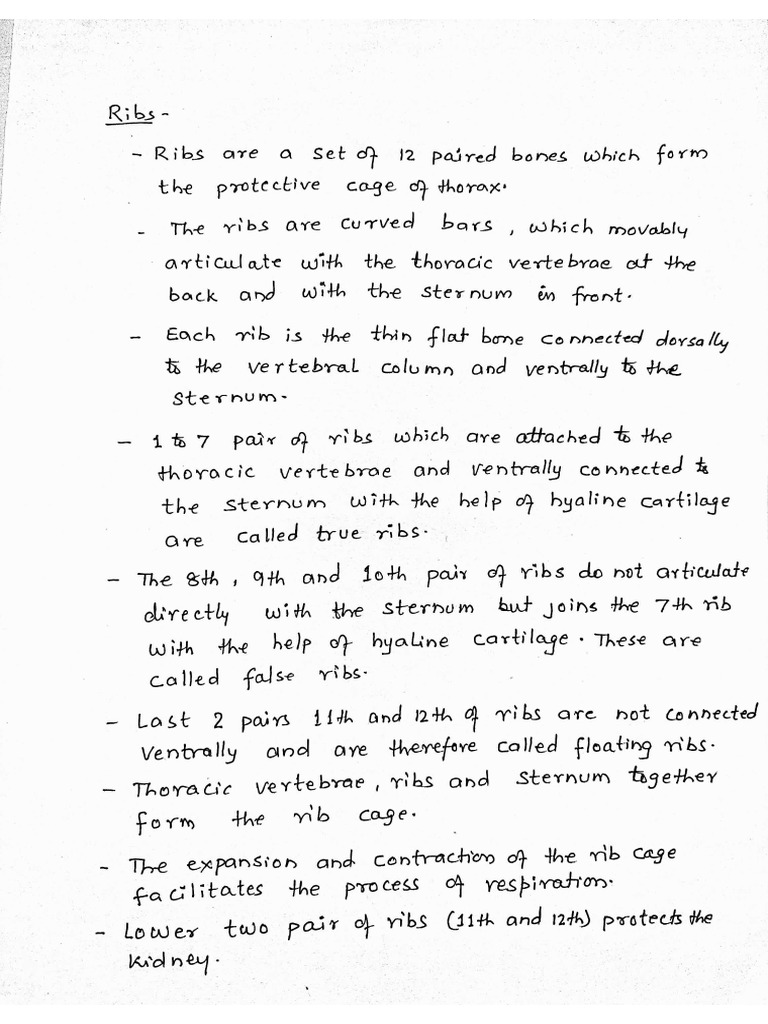 Ribs -
- Ribs are a set of 12 paired bones which form
the protective cage of thorax.
- The ribs are curved bars, which movably
articulate with the thoracic vertebrae at the
back and with the sternum in front.
- Each rib is the thin flat bone connected dorsally
to the vertebral column and ventrally to the
sternum.
- 1 to 7 pair of ribs which are attached to the
thoracic vertebrae and ventrally connected to
the sternum with the help of hyaline cartilage
are called true ribs.
- The 8th, 9th and 10th pair of ribs do not articulate
directly with the sternum but joins the 7th rib
with the help of hyaline cartilage. These are
called false ribs.
- Last 2 pairs 11th and 12th of ribs are not connected
ventrally and are therefore called floating ribs.
- Thoracic vertebrae, ribs and sternum together
form the rib cage.
- The expansion and contraction of the rib cage
facilitates the process of respiration.
- Lower two pair of ribs (11th and 12th) protects the
kidney.